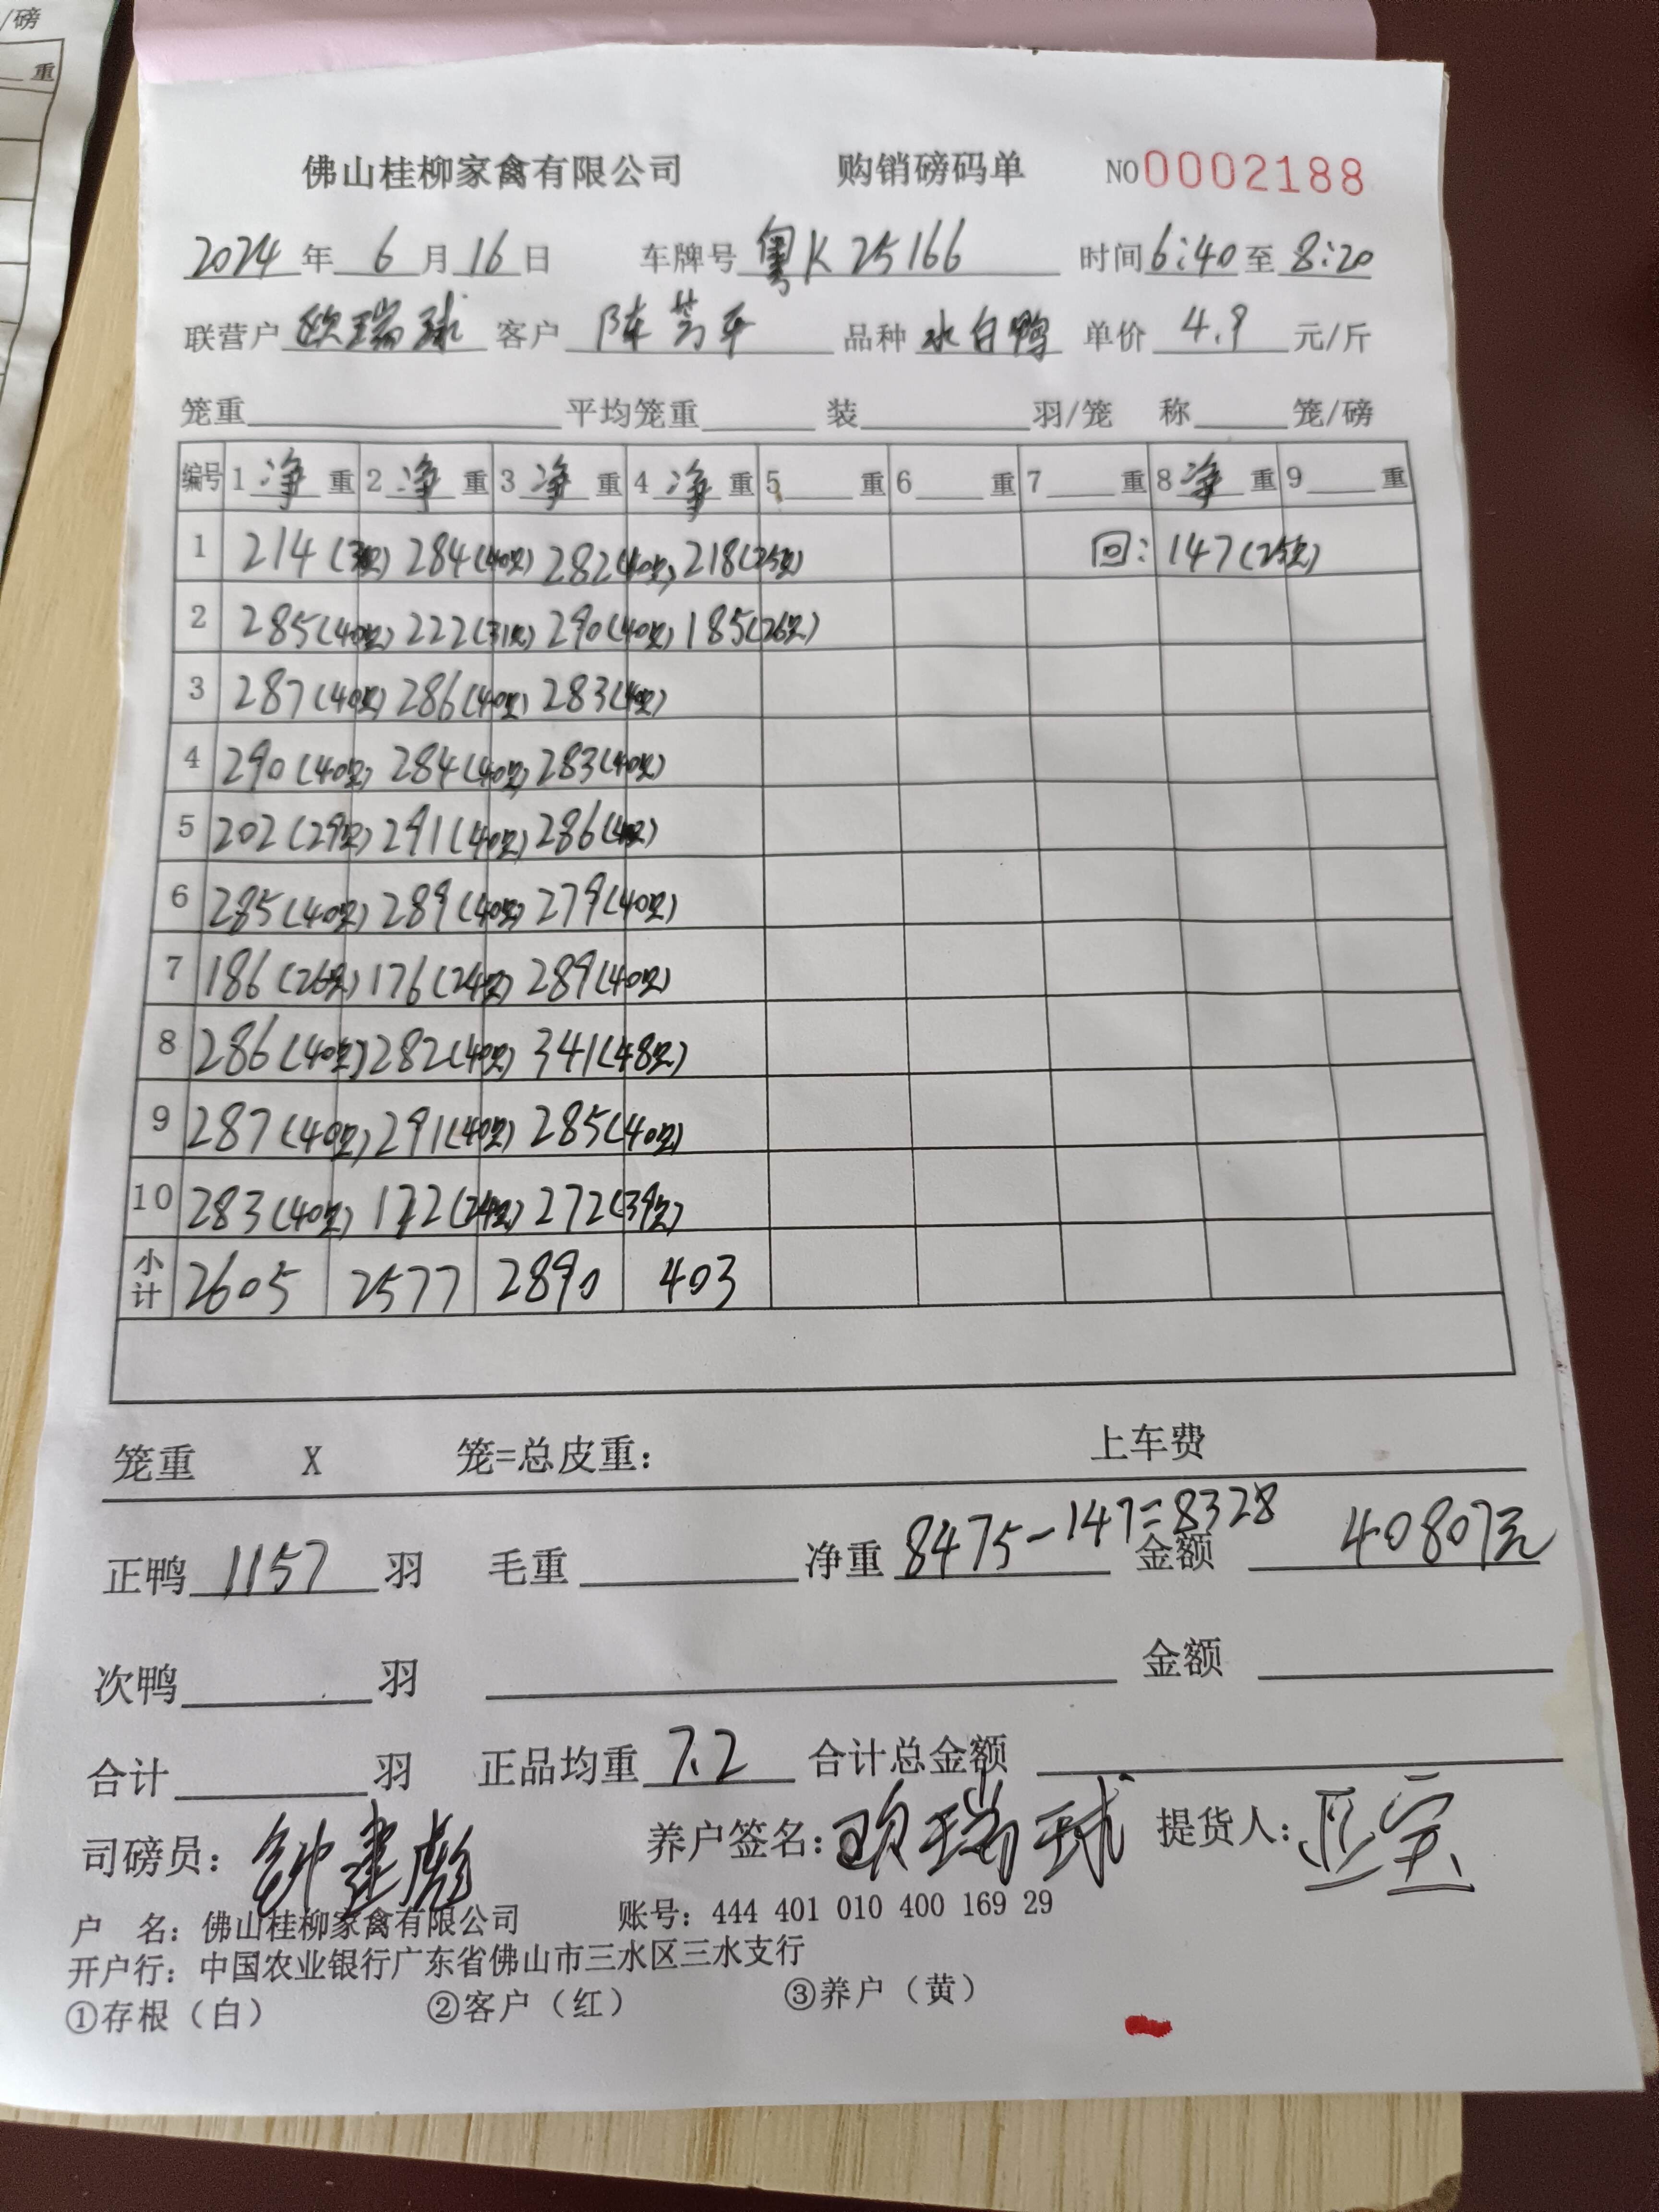 /磅
重
佛山桂柳家禽有限公司 购销磅码单 NO 0002188
2024 年 6 月 16 日 车牌号 粤K 25166 时间 6:40 至 8:20
联营户 欧瑞球 客户 陈 平 品种 水白鸭 单价 4.9 元/斤
笼重 平均笼重 装 羽/笼 称 笼/磅
编号 1 净 重 2 净 重 3 净 重 4 净 重 5 重 6 重 7 重 8 净 重 9 重
1 214 284(40只) 282(40只) 218(25只) 回: 147(25只)
2 285(40只) 222(31只) 290(40只) 185(26只)
3 287(40只) 286(40只) 283(40只)
4 290(40只) 284(40只) 283(40只)
5 202(29只) 291(40只) 286(40只)
6 285(40只) 289(40只) 279(40只)
7 186(26只) 176(24只) 289(40只)
8 286(40只) 282(40只) 341(48只)
9 287(40只) 291(40只) 285(40只)
10 283(40只) 172(24只) 272(39只)
小计 2605 2577 2890 403
笼重 X 笼=总皮重: 上车费
正鸭 1157 羽 毛重 净重 8475-147=8328 金额 40807元
次鸭 羽 金额
合计 羽 正品均重 7.2 合计总金额
司磅员: 钟建彪 养户签名: 欧瑞球 提货人: 亚宝
户 名: 佛山桂柳家禽有限公司 账号: 444 401 010 400 169 29
开户行: 中国农业银行广东省佛山市三水区三水支行
①存根（白） ②客户（红） ③养户（黄）